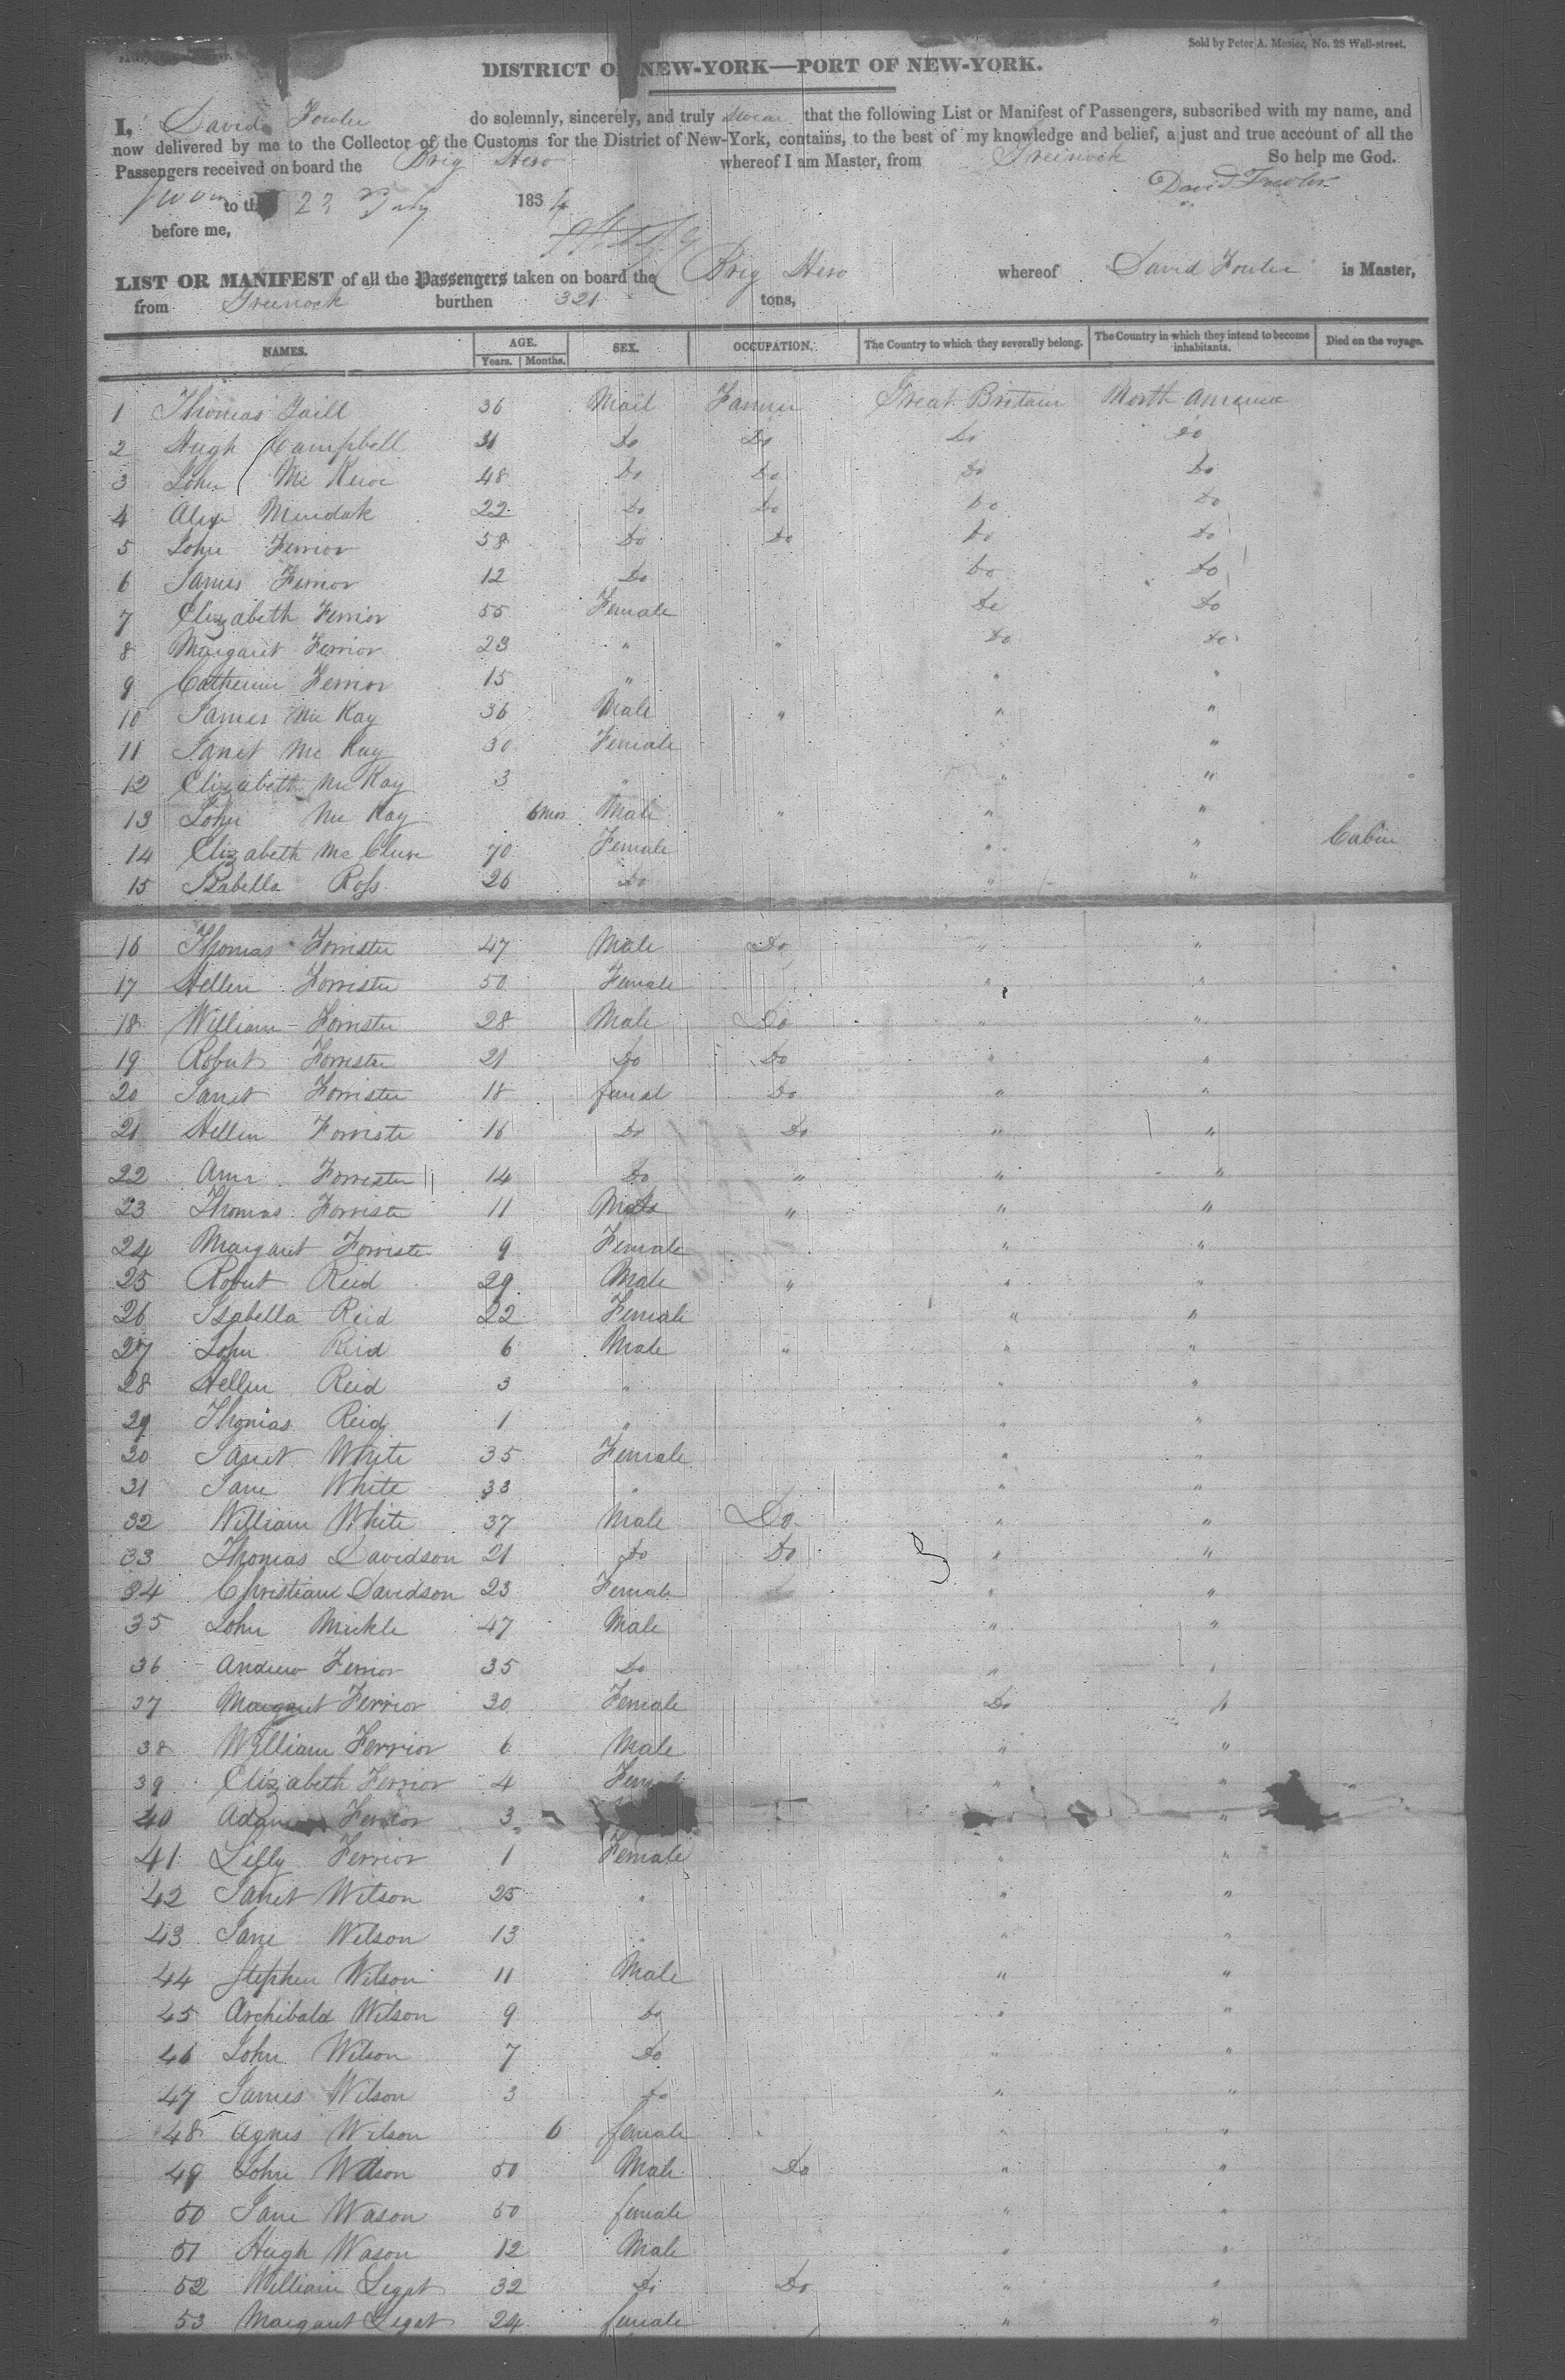 Sold by Peter A. Mesier, No. 28 Wall-street.
DISTRICT OF NEW-YORK—PORT OF NEW-YORK.
I, David Fowler do solemnly, sincerely, and truly swear that the following List or Manifest of Passengers, subscribed with my name, and
now delivered by me to the Collector of the Customs for the District of New-York, contains, to the best of my knowledge and belief, a just and true account of all the
Passengers received on board the Brig Hero whereof I am Master, from Greenock So help me God.
David Fowler
Sworn to the 22 July 1834
before me,
LIST OR MANIFEST of all the Passengers taken on board the Brig Hero whereof David Fowler is Master,
from Greenock burthen 321 tons,
NAMES. AGE. Years. Months. SEX. OCCUPATION. The Country to which they severally belong. The Country in which they intend to become inhabitants. Died on the voyage.
1 Thomas 36 Mail Farmer Great Britain North America
2 Hugh Campbell 31 Do Do Do Do
3 John 48 Do Do Do Do
4 Alex 22 Do Do Do Do
5 John Ferrior 58 Do Do Do Do
6 James Ferrior 12 Do Do Do
7 Elizabeth Ferrior 55 Female Do Do
8 Margaret Ferrior 23 " " Do Do
9 Catherine Ferrior 15 " " "
10 James Mc Kay 36 Male " " "
11 Janet Mc Kay 30 Female " "
12 Elizabeth Mc Kay 3 " " "
13 John Mc Kay 6 mos Male " " "
14 Elizabeth Mc Clure 70 Female " " Cabin
15 Isabella Ross 26 Do " "
16 Thomas Forrister 47 Male Do " "
17 Hellen Forrister 50 Female " "
18 William Forrister 28 Male Do " "
19 Robert Forrister 21 Do Do " "
20 Janet Forrister 18 femal Do " "
21 Hellen Forriste 16 Do Do " "
22 Ann Forrister 14 Do " " "
23 Thomas Forriste 11 Male " " "
24 Margaret Forriste 9 Female " "
25 Robert Reid 29 Male " " "
26 Isabella Reid 22 Female " "
27 John Reid 6 Male " " "
28 Hellen Reid 3 " " "
29 Thomas Reid 1 " " "
30 Janet White 35 Female " "
31 Jane White 33 " " "
32 William White 37 Male Do " "
33 Thomas Davidson 21 Do Do " "
34 Christiane Davidson 23 Female " "
35 John Mickle 47 Male " "
36 Andrew Ferrior 35 Do " "
37 Margaret Ferrior 30 Female Do "
38 William Ferrior 6 Male " "
39 Elizabeth Ferrior 4 Female " " "
40 Adam Ferrior 3 "
41 Lilly Ferrior 1 Female " "
42 Janet Wilson 25 " " "
43 Jane Wilson 13 " " "
44 Stephen Wilson 11 Male " "
45 Archibald Wilson 9 Do " "
46 John Wilson 7 Do " "
47 James Wilson 3 Do " "
48 Agnes Wilson 6 female " "
49 John Wason 50 Male Do " "
50 Jane Wason 50 female " "
51 Hugh Wason 12 Male " "
52 William Legat 32 Do Do " "
53 Margaret Legat 24 female " "